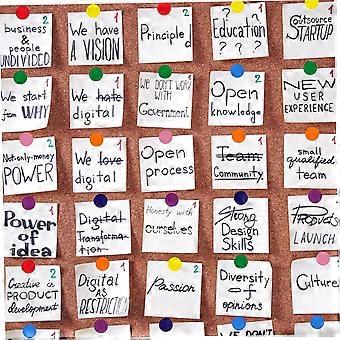 2
business
&
people
UNDIVIDED
1
We have
A VISION
2
Principled
1
Education
? ? ?
1
Outsource
STARTUP
1
We start
from WHY
1
We hate
digital
1
We DON'T WORK
WITH
Government
2
Open
knowledge
1
NEW
USER
EXPERIENCE
2
Not-only-money
POWER
1
We love
digital
1
Open
process
1
Team
Community
1
small
qualified
team
1
Power of
idea
1
Digital
Transforma-
tion
1
Honesty with
ourselves
Strong
Design
Skills
1
Product
LAUNCH
2
Creative in
PRODUCT
development
1
Digital
AS
RESTRICTION
2
Passion
2
Diversity
of
opinions
1
Culture
WE DON'T